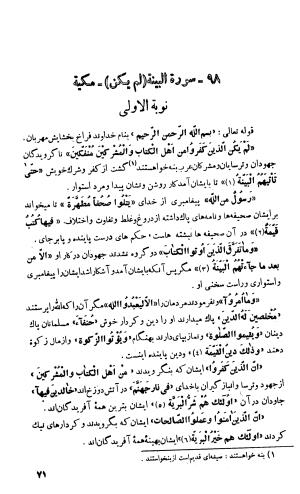 ۹۸ ـ سورة البینة (لم یکن) ـ مکیة
نوبة الاولی
قوله تعالی : «بسم الله الرحمن الرحیم» بنام خداوند فراخ بخشایش مهربان.
«لم یکن الذین کفروا من اهل الکتاب و المشرکین منفکین» نا گرویدگان
جهودان و ترسایان و مشرکان عرب بنه خواستند۱ گشت از کفر و شرک خویش «حتی
تأتیهم البینة (۱)» تا بایشان آمد کار روشن و نشان پیدا و مرد استوار.
«رسول من الله» پیغامبری از خدای «یتلوا صحفا مطهرة» تا میخواند
بر ایشان صحیفه‌ها و نامه‌های پاک داشته از دروغ و غلط و تفاوت و اختلاف. «فیها کتب
قیمة (۲)» در آن صحیفه‌ها نبشته هاست، حکم های درست پاینده و پابرجای.
«و ما تفرق الذین اوتوا الکتاب» دو گروه نشدند جهودان در کار او «الا من
بعد ما جاءتهم البینة (۳)» مگر پس آنکه بایشان آمد و آشکارا شد ایشان را پیغامبری
و استواری و راست سخنی او.
«و ما امروا» و نفرمودند مردمان را «الا لیعبدوا الله» مگر آن را که الله را پرستند
«مخلصین له الدین» پاک میدارند او را دین و کردار خوش «حنفاء» مسلمانان پاک
دینان «و یقیموا الصلوة» و نماز بپای دارند بهنگام «و یؤتوا الزکوة» و از مال زکوة
دهند «و ذلک دین القیمة (۴)» و دین پاینده اینست.
«ان الذین کفروا» ایشان که بنگرویدند «من اهل الکتاب و المشرکین»
از جهود و ترسا و انباز گیران با خدای «فی نار جهنم» در آتش دوزخ‌اند «خالدین فیها»
جاودان در آن «اولئک هم شر البریة (۵)» ایشان بترین همهٔ آفریدگان‌اند.
«ان الذین آمنوا و عملوا الصالحات» ایشان که بگرویدند و کردارهای نیک
کردند «اولئک هم خیر البریة (۶)» ایشان بهینهٔ همهٔ آفریدگان‌اند.
۱) بنه خواستند : صیغه‌ای قدیم است از بنخواستند.
۷۱